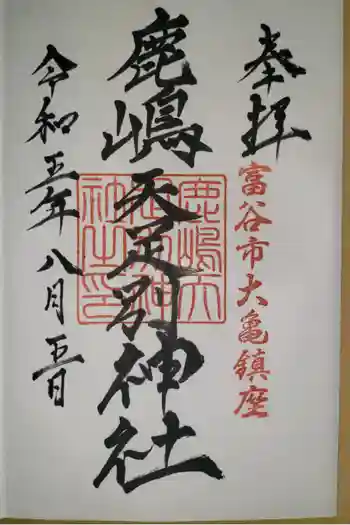 奉拝
富谷市大亀鎮座
鹿嶋天足別神社
鹿嶋天足別神社之印
令和五年八月五日